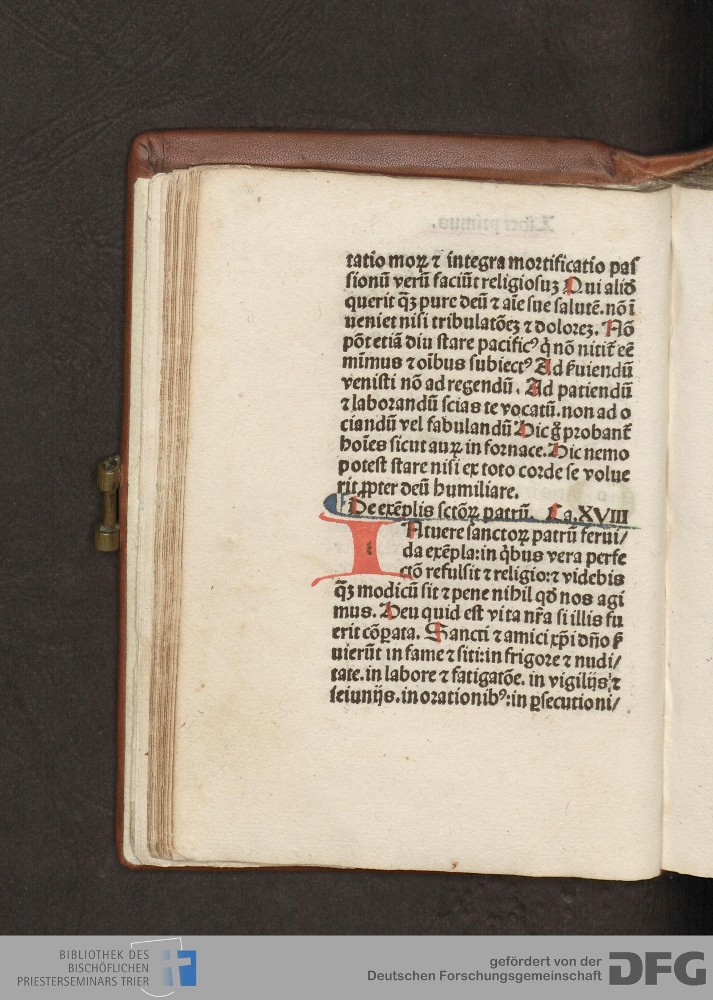 tatio moꝝ ⁊ integra mortificatio paſ
ſionũ verũ faciũt religioſuꝫ Qui aliđ
querit qꝫ̃ pure deũ ⁊ aĩe ſue ſalutẽ. nõ ĩ
ueniet niſi tribulatõeꝫ ⁊ dolorez. Nõ
põt etiã diu ſtare pacificꝰ q̇ nõ nitit̃ eẽ
mĩmus ⁊ oĩbus ſubiectꝰ Ad ẜuiendũ
veniſti nõ ad regendũ. Ad patiendũ
⁊ laborandũ ſcias te vocatũ. non ad o
ciandũ vel fabulandũ Hic g̊ probant̃
hoĩes ſicut auꝝ in fornace. Hic nemo
poteſt ſtare niſi ex toto corde ſe volue
rit ꝓpter deũ humiliare.
De exẽplis ſctõꝝ patrũ. Ca. XVIII
INtuere ſanctoꝝ patrũ ferui/
da exẽpla: in q̇bus vera perfe
ctõ refulſit ⁊ religio: ⁊ videbis
qꝫ̃ modicũ ſit ⁊ pene nihil qđ nos agi
mus. Heu quid eſt vita nr̃a ſi illis fu
erit cõꝑata. Sancti ⁊ amici xp̃i dño ẜ
uierũt in fame ⁊ ſiti: in frigore ⁊ nudi/
tate. in labore ⁊ fatigatõe. in vigilijs ⁊
ieiunijs. in orationibꝰ: in ꝑſecutioni/
BIBLIOTHEK DES
BISCHÖFLICHEN
PRIESTERSEMINARS TRIER
gefördert von der
Deutschen Forschungsgemeinschaft
DFG